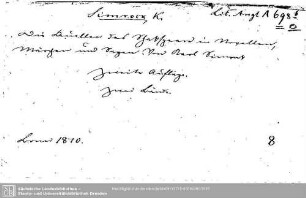 Simrock K.
Lit. Angl. A 698
Die Quellen des Shakspeare in Novellen,
Märchen und Sagen von Karl Simrock
Zweite Auflage.
Zwei Bände.
Bonn 1870.
8
Sächsische Landesbibliothek -
Staats- und Universitätsbibliothek Dresden